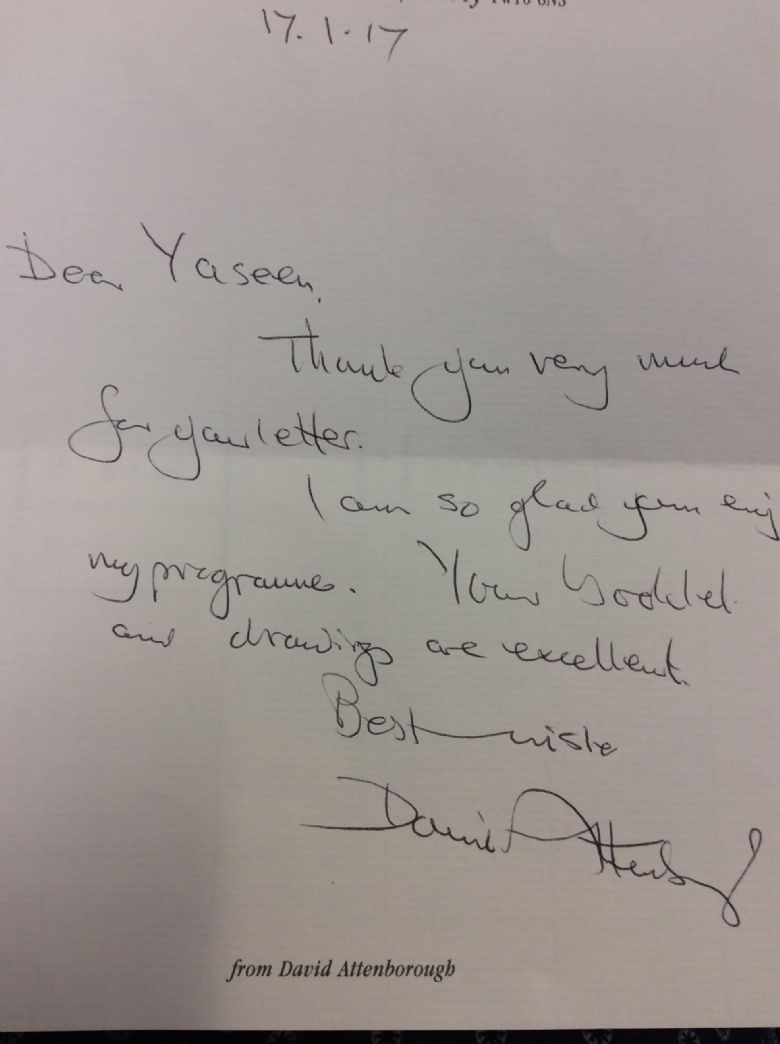 17.1.17
Dear Yaseen,
Thank you very much
for your letter.
I am so glad you enj
my programmes. Your booklet
and drawings are excellent.
Best wishes
David Attenborough
from David Attenborough